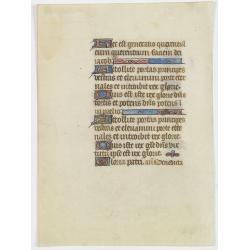 Hec est generatio querentiu
eum querentium faciem dei
iacob
Attollite portas principes
vestras et elevamini porte eter
nales et introibit rex glorie.
Quis est iste rex glorie dns
fortis et potens dns potens i
prelio
Attollite portas principes
vestras et elevamini porte eter
nales et introibit rex glorie
Quis est iste rex glorie dns
tutu ipse est rex glorie.
Gloria patri. an Benedicta